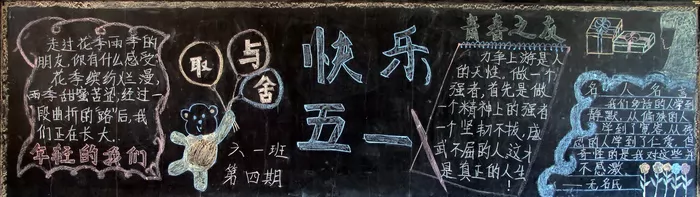 走过花季雨季的
朋友,你有什么感受
花季缤纷烂漫,
雨季甜蜜苦涩,经过一
段曲折的"路"后,我
们正在长大。
年轻的我们
取与舍
六一班
第四期
快乐
五一
青春之友
力争上游是人
的天性,做一个
强者,首先是做
一个精神上的强者
一个坚韧不拔,威
武不屈的人,这才
是真正的人生!
名人名言
我们多话的人学会
静默,从偏狭的人
学到了宽容,从
恶的人学到了仁爱
奇怪的是我对这些
不感激
——无名氏